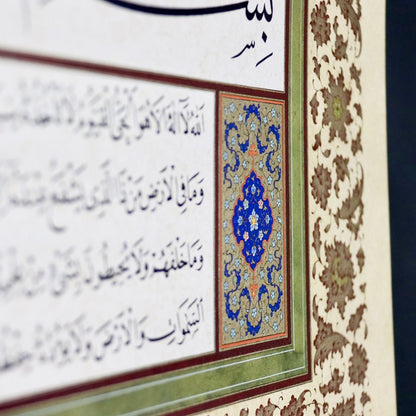 اَللّٰهُ لَا إِلٰهَ إِلَّا هُوَ الْحَيُّ الْقَيُّومُ لَا تَأْخُذُهُ
وَمَا فِي الْأَرْضِ مَنْ ذَا الَّذِي يَشْفَعُ عِنْدَهُ
وَمَا خَلْفَهُمْ وَلَا يُحِيطُونَ بِشَيْءٍ مِنْ
السَّمٰوَاتِ وَالْأَرْضَ وَلَا يَؤُدُهُ